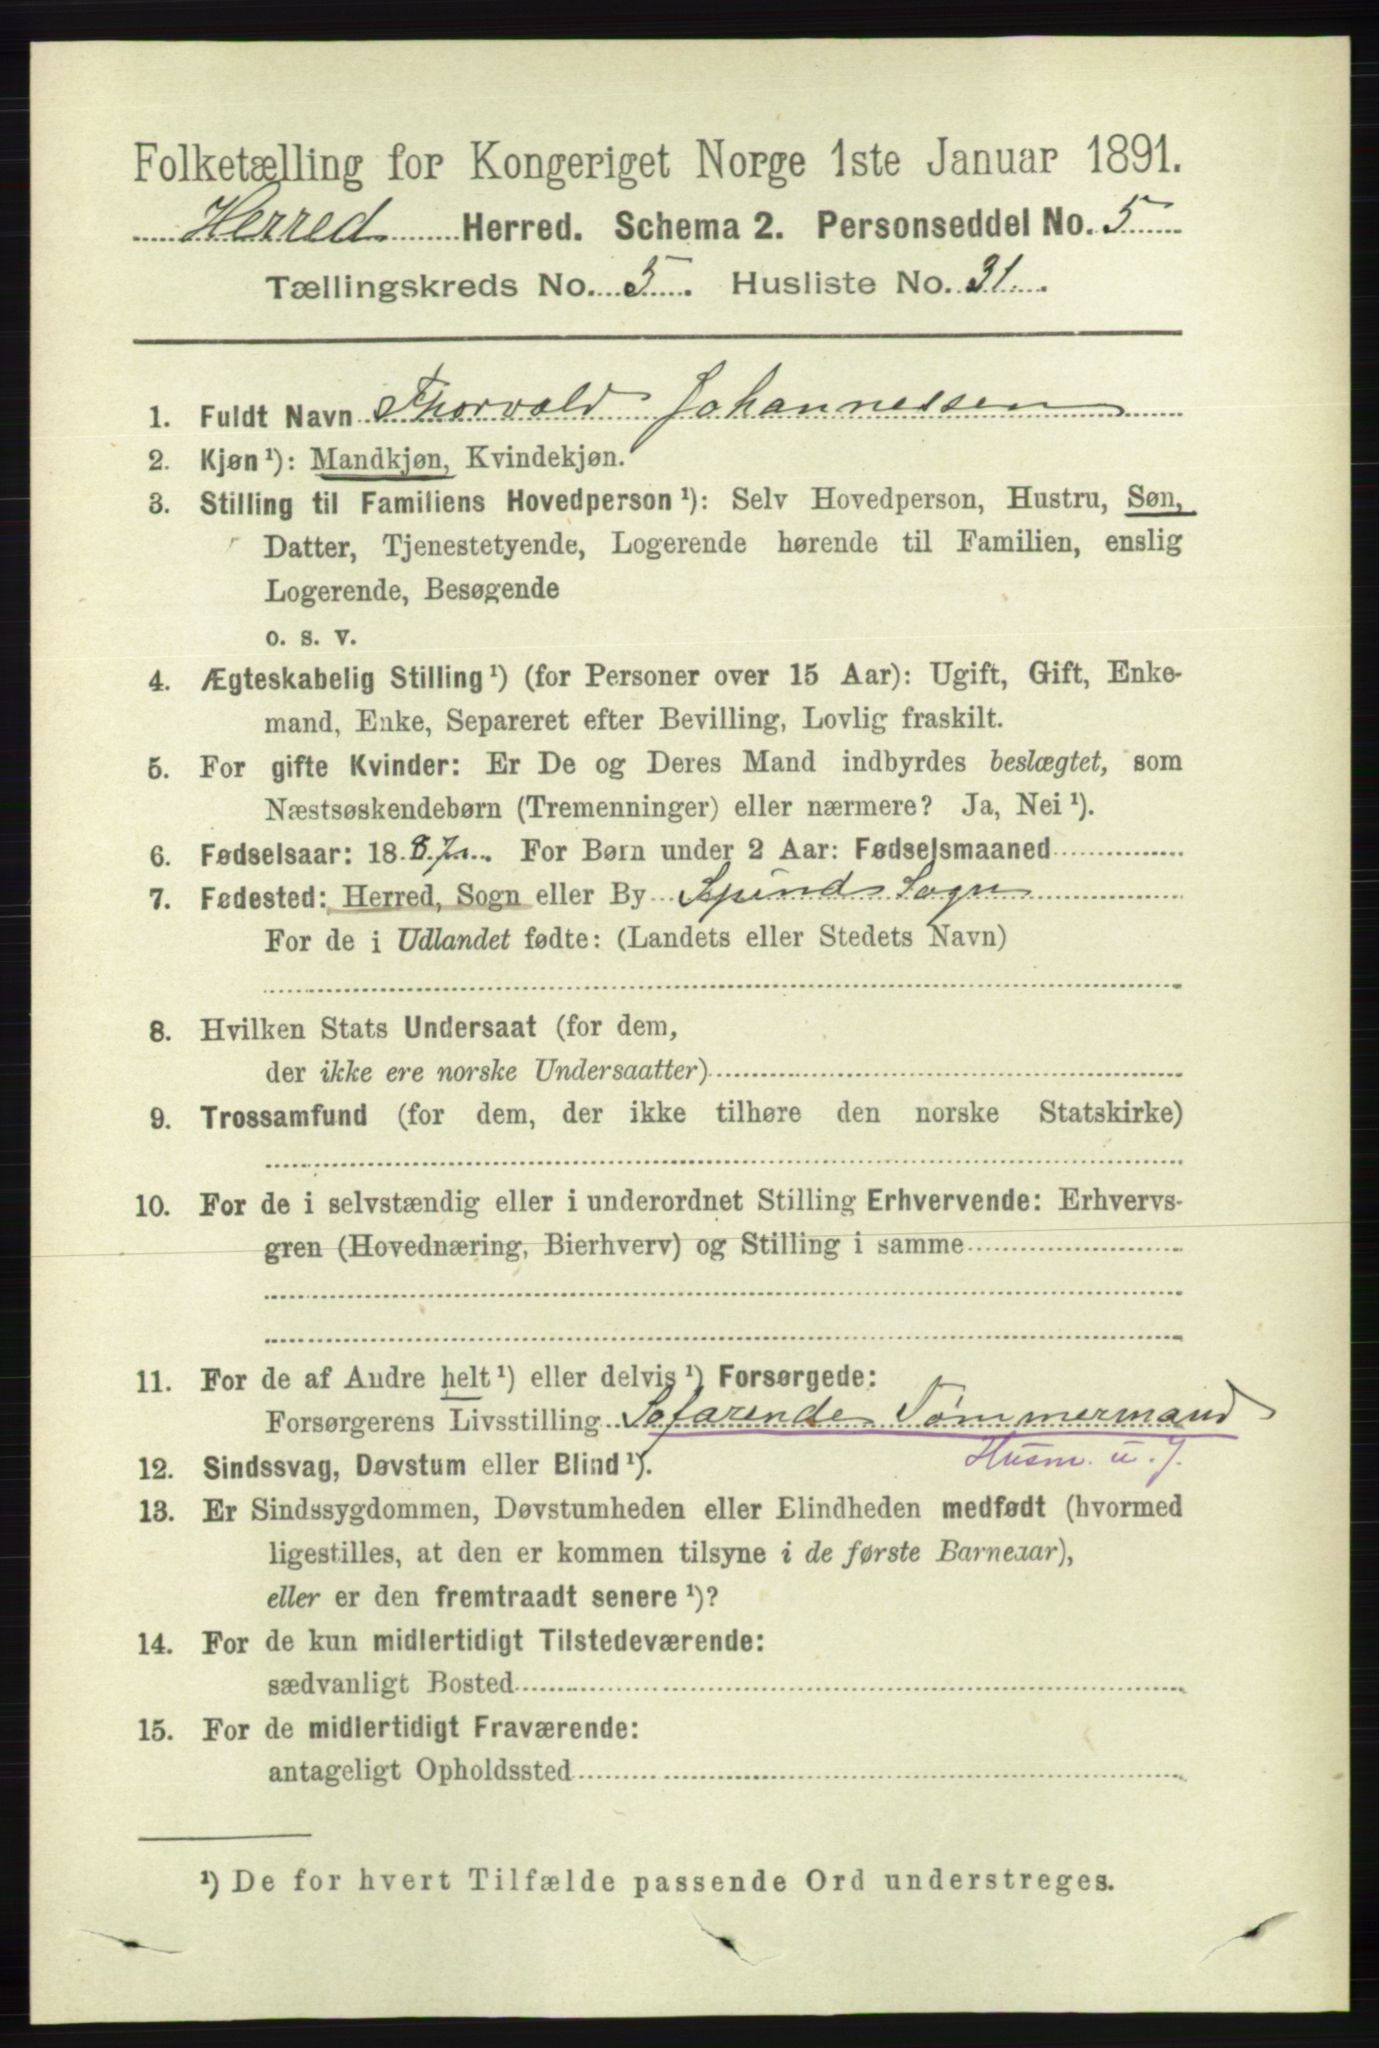 Folketælling for Kongeriget Norge 1ste Januar 1891.
Herred Herred. Schema 2. Personseddel No. 5
Tællingskreds No. 5. Husliste No. 31.
1. Fuldt Navn Thorvald Johannessen
2. Kjøn ¹): Mandkjøn, Kvindekjøn.
3. Stilling til Familiens Hovedperson ¹): Selv Hovedperson, Hustru, Søn,
Datter, Tjenestetyende, Logerende hørende til Familien, enslig
Logerende, Besøgende
o. s. v.
4. Ægteskabelig Stilling ¹) (for Personer over 15 Aar): Ugift, Gift, Enke-
mand, Enke, Separeret efter Bevilling, Lovlig fraskilt.
5. For gifte Kvinder: Er De og Deres Mand indbyrdes beslægtet, som
Næstsøskendebørn (Tremenninger) eller nærmere? Ja, Nei ¹).
6. Fødselsaar: 1887. For Børn under 2 Aar: Fødselsmaaned
7. Fødested: Herred, Sogn eller By Spinds Sogn
For de i Udlandet fødte: (Landets eller Stedets Navn)
8. Hvilken Stats Undersaat (for dem,
der ikke ere norske Undersaatter)
9. Trossamfund (for dem, der ikke tilhøre den norske Statskirke)
10. For de i selvstændig eller i underordnet Stilling Erhvervende: Erhvervs-
gren (Hovednæring, Bierhverv) og Stilling i samme
11. For de af Andre helt ¹) eller delvis ¹) Forsørgede:
Forsørgerens Livsstilling Søfarende Tømmermand
Husm. u. J.
12. Sindssvag, Døvstum eller Blind ¹).
13. Er Sindssygdommen, Døvstumheden eller Blindheden medfødt (hvormed
ligestilles, at den er kommen tilsyne i de første Barneaar),
eller er den fremtraadt senere ¹)?
14. For de kun midlertidigt Tilstedeværende:
sædvanligt Bosted
15. For de midlertidigt Fraværende:
antageligt Opholdssted
¹) De for hvert Tilfælde passende Ord understreges.